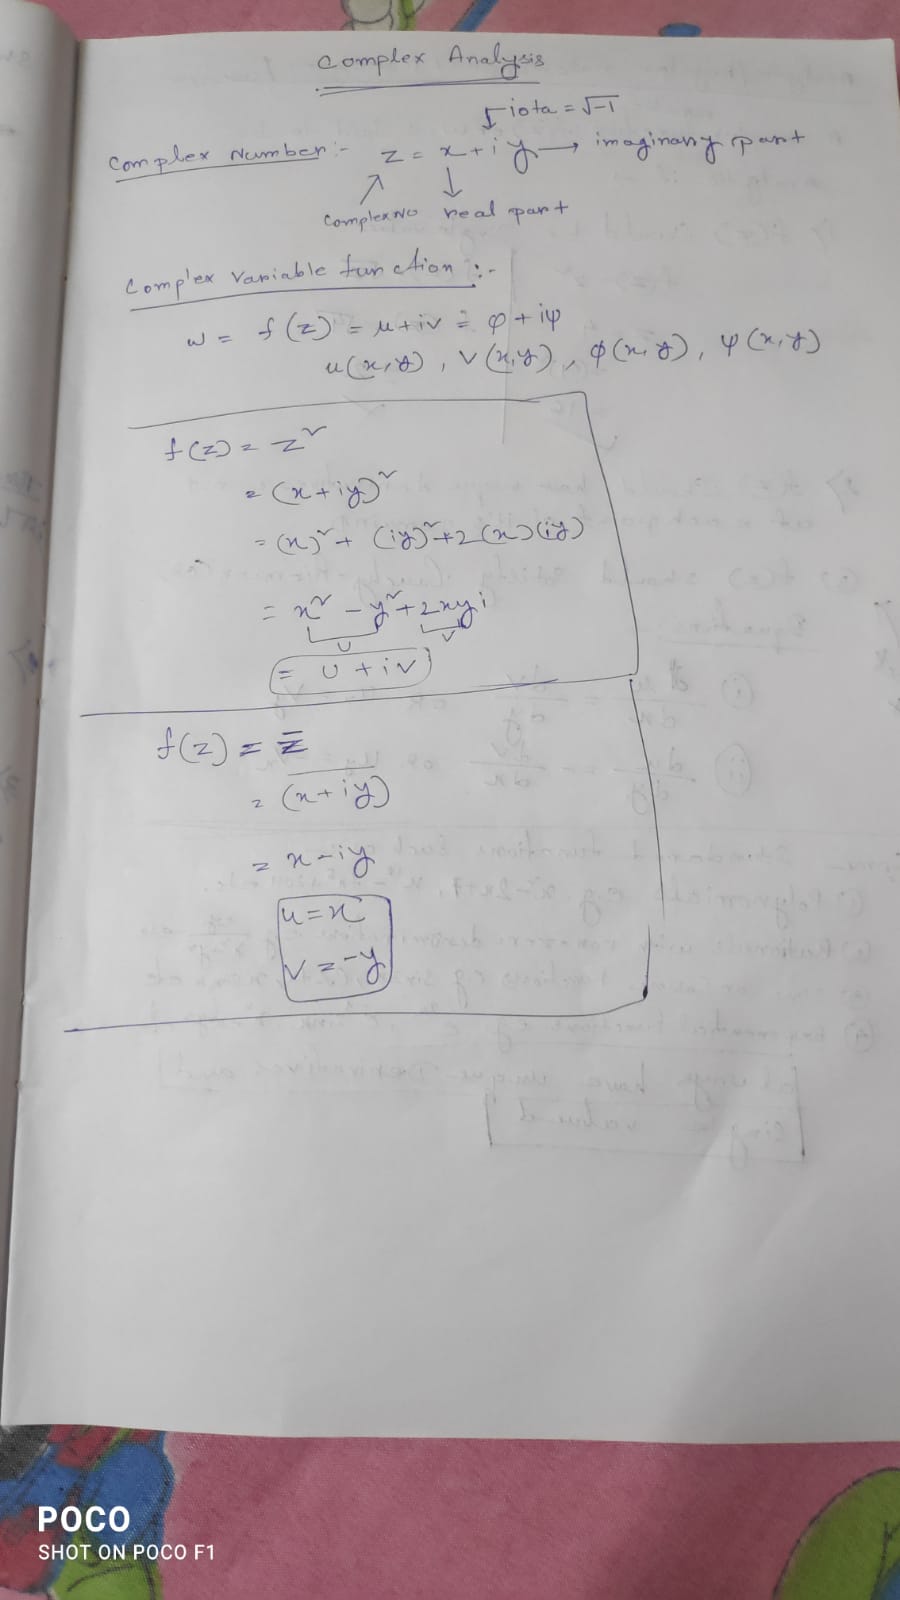 Complex Analysis
iota = √-1
Complex Number :- z = x + i y → imaginary part
Complex No real part
Complex Variable function :-
w = f(z) = u + iv = φ + iψ
u(x,y), v(x,y), φ(x,y), ψ(x,y)
f(z) = z²
= (x + iy)²
= (x)² + (iy)² + 2(x)(iy)
= x² - y² + 2xyi
U V
= U + iV
f(z) = z̅
= (x + iy)
= x - iy
u = x
v = -y
POCO
SHOT ON POCO F1